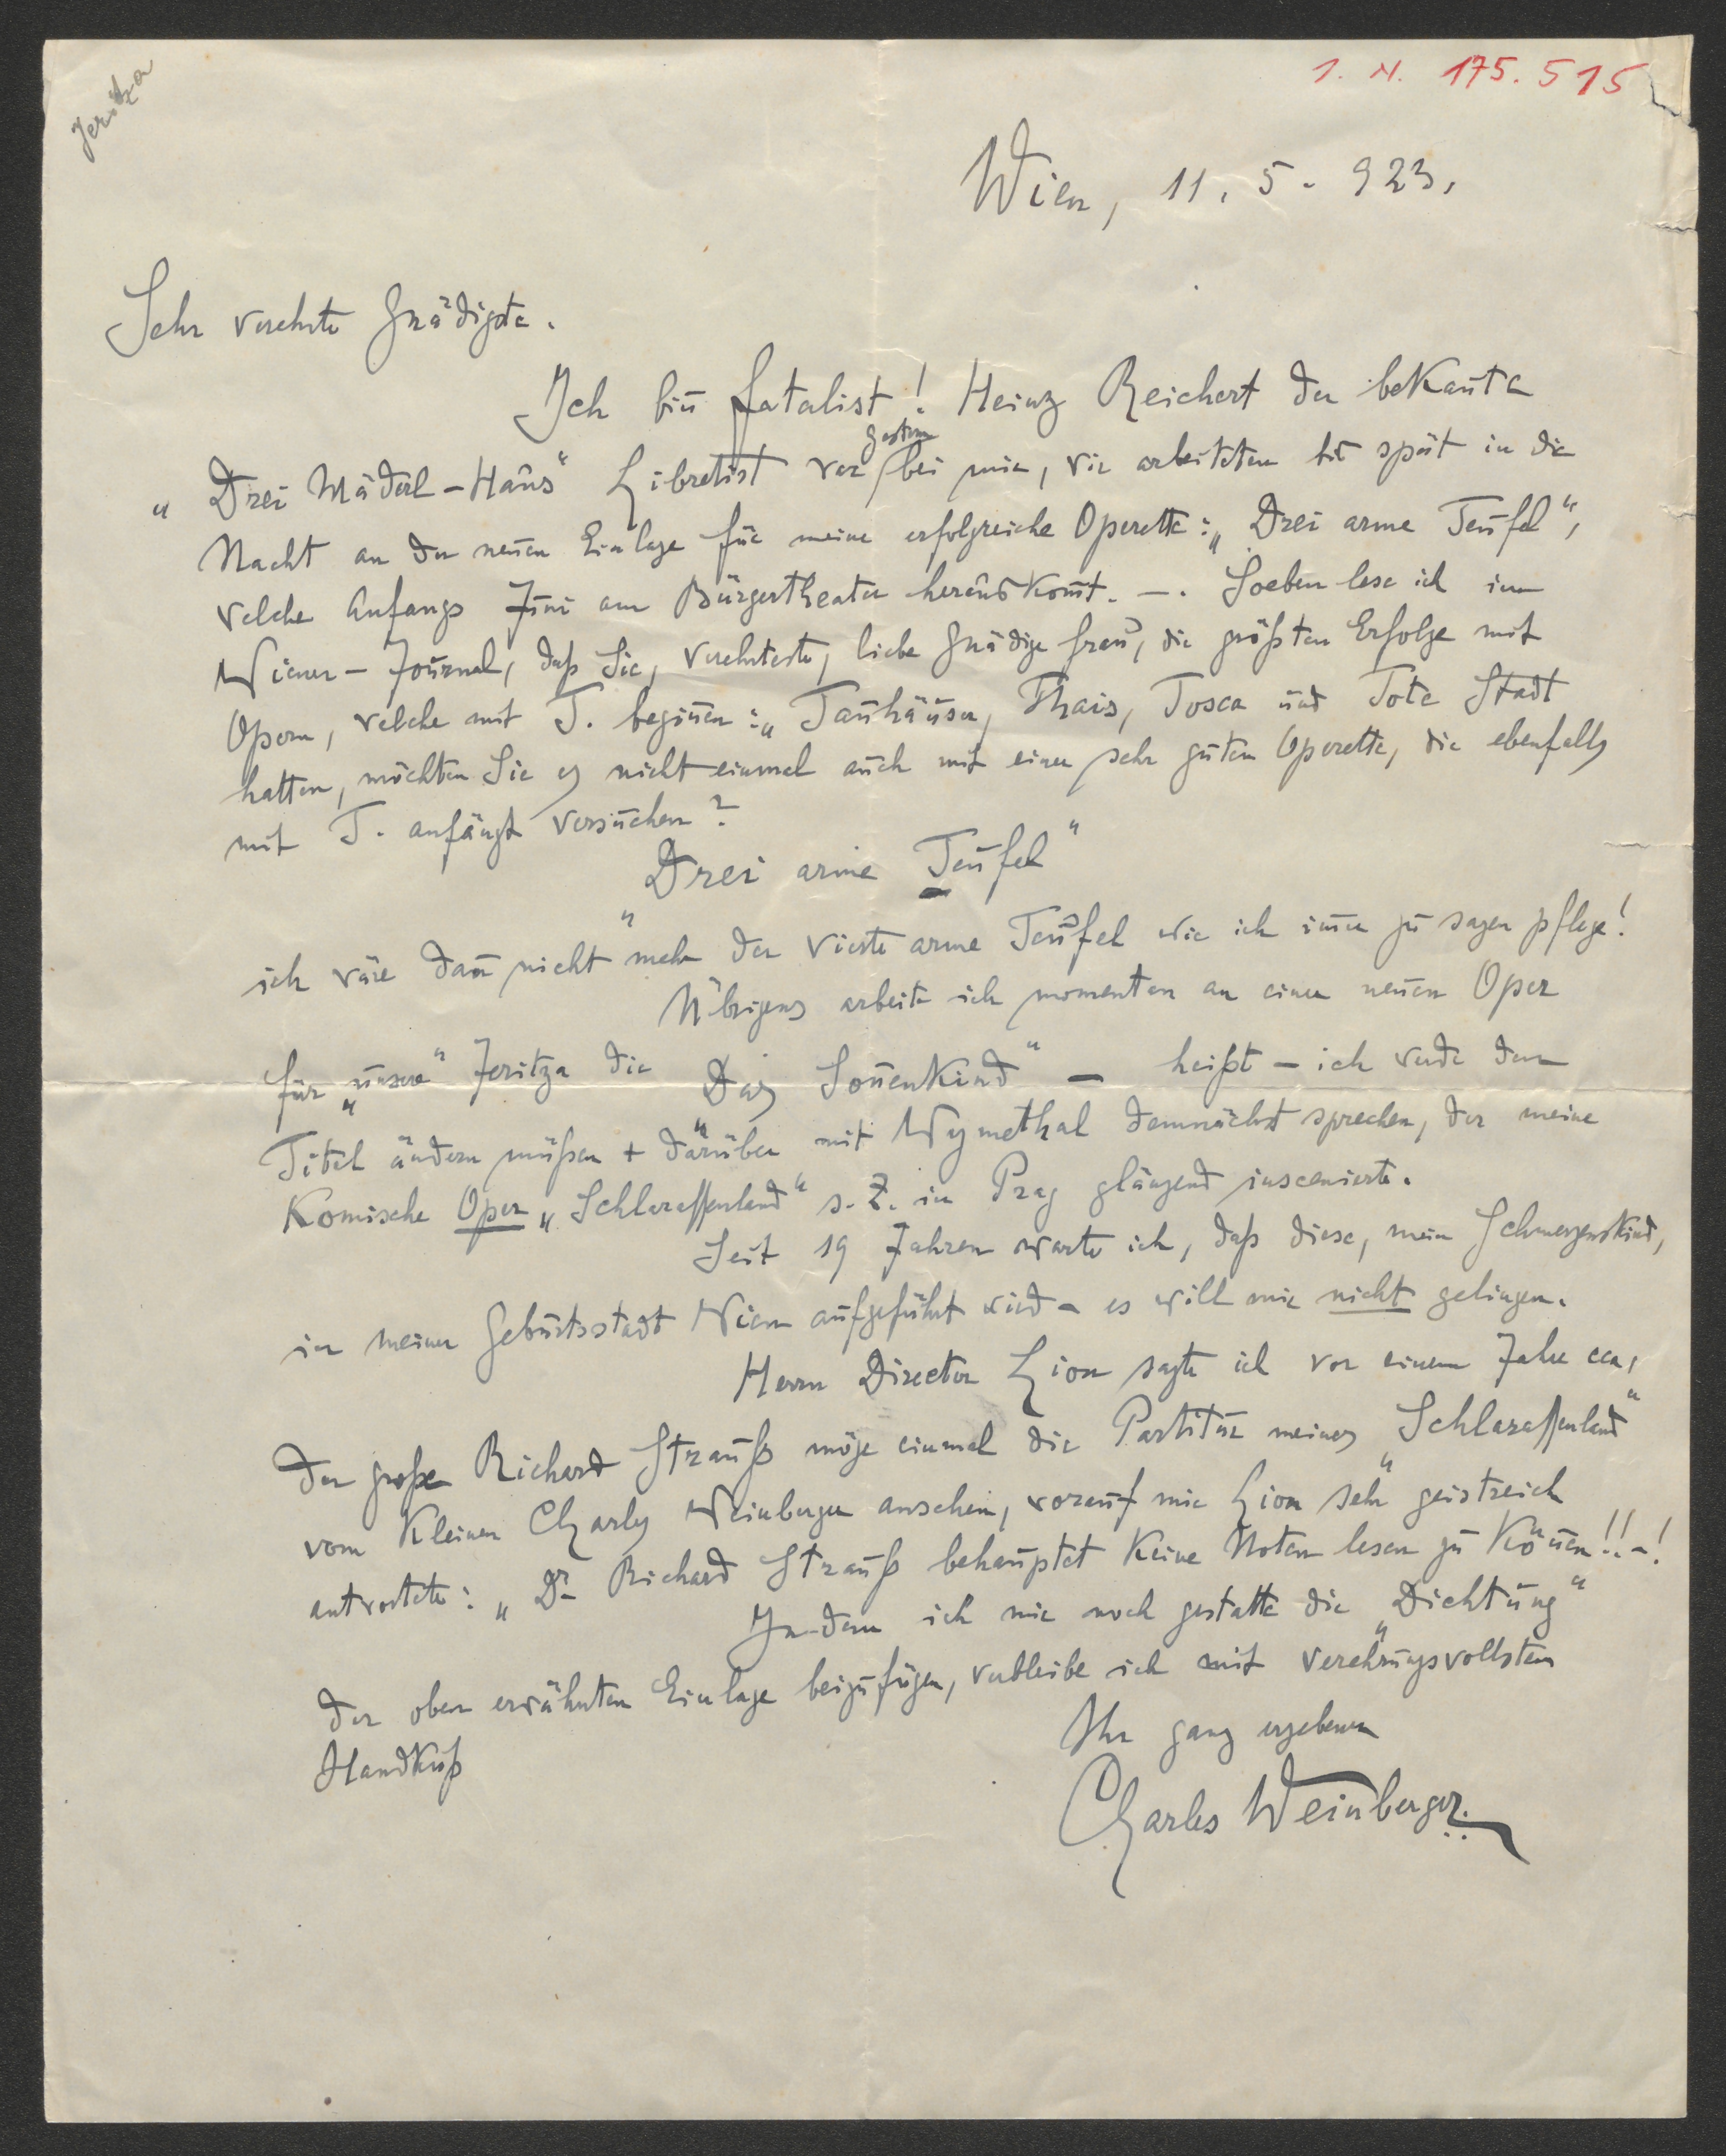 Jeritza
I. N. 175.515
Wien, 11. 5. 923.
Sehr verehrte Gnädigste.
Ich bin̄ Fatalist! Heinz Reichert der bekan̄te
„Drei Mäderl-Haus“ Libretist war gestern bei mir, wir arbeiteten bis spät in die
Nacht an der neuen Einlage für meine erfolgreiche Operette: „Drei arme Teufel“,
welche Anfangs Juni am Bürgertheater herauskom̄t. —. Soeben lese ich im
Wiener-Journal, daß Sie, verehrteste, liebe Gnädige Frau, die größten Erfolge mit
Opern, welche mit T. begin̄en: „Tan̄häuser, Thais, Tosca und Tote Stadt
hatten, möchten Sie es nicht einmal auch mit einer sehr guten Operette, die ebenfalls
mit T. anfängt versuchen?
„Drei arme Teufel“
ich wäre dan̄ nicht mehr der vierte arme Teufel wie ich im̄er zu sagen pflege!
Übrigens arbeite ich momentan an einer neuen Oper
für „unsere“ Jeritza die „Das Son̄enkind“ — heißt — ich werde den
Titel ändern müßen + darüber mit Wymethal demnächst sprechen, der meine
Komische Oper „Schlaraffenland“ s. Z. in Prag glänzend inscenierte.
Seit 19 Jahren warte ich, daß diese, mein Schmerzenskind,
in meiner Geburtsstadt Wien aufgeführt wird – es will mir nicht gelingen.
Herrn Director Lion sagte ich vor einem Jahre cca,
der große Richard Strauß möge einmal die Partitur meines „Schlaraffenland“
vom Kleinen Charly Weinberger ansehen, worauf mir Lion sehr geistreich
antwortete: „Dr. Richard Strauß behauptet keine Noten lesen zu kön̄en!!-!
In-dem ich mir noch gestatte die „Dichtung“
der oben erwähnten Einlage beizufügen, verbleibe ich mit verehrungsvollstem
Handkuß
Ihr ganz ergebener
Charles Weinberger.